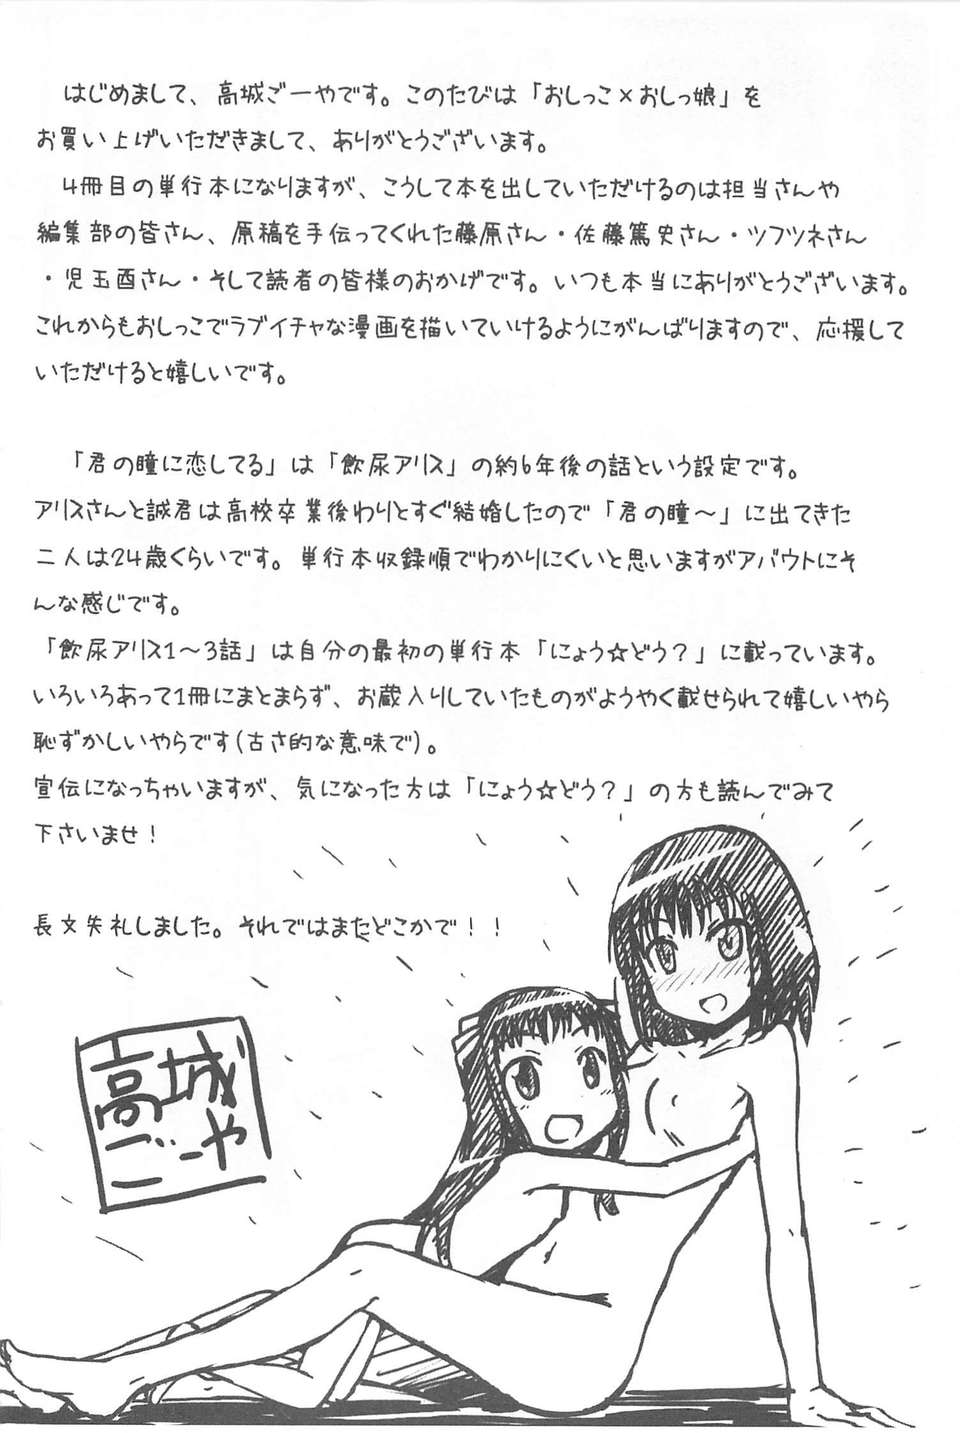 はじめまして、高城ごーやです。このたびは「おしっこ×おしっ娘」を
お買い上げいただきまして、ありがとうございます。
4冊目の単行本になりますが、こうして本を出していただけるのは担当さんや
編集部の皆さん、原稿を手伝ってくれた藤原さん・佐藤篤史さん・ツフツネさん
・児玉酉さん・そして読者の皆様のおかげです。いつも本当にありがとうございます。
これからもおしっこでラブイチャな漫画を描いていけるようにがんばりますので、応援して
いただけると嬉しいです。
「君の瞳に恋してる」は「飲尿アリス」の約6年後の話という設定です。
アリスさんと誠君は高校卒業後わりとすぐ結婚したので「君の瞳～」に出てきた
二人は24歳くらいです。単行本収録順でわかりにくいと思いますがアバウトにそ
んな感じです。
「飲尿アリス1～3話」は自分の最初の単行本「にょう☆どう?」に載っています。
いろいろあって1冊にまとまらず、お蔵入りしていたものがようやく載せられて嬉しいやら
恥ずかしいやらです(古さ的な意味で)。
宣伝になっちゃいますが、気になった方は「にょう☆どう?」の方も読んでみて
下さいませ!
長文失礼しました。それではまたどこかで!!
高城
ごーや